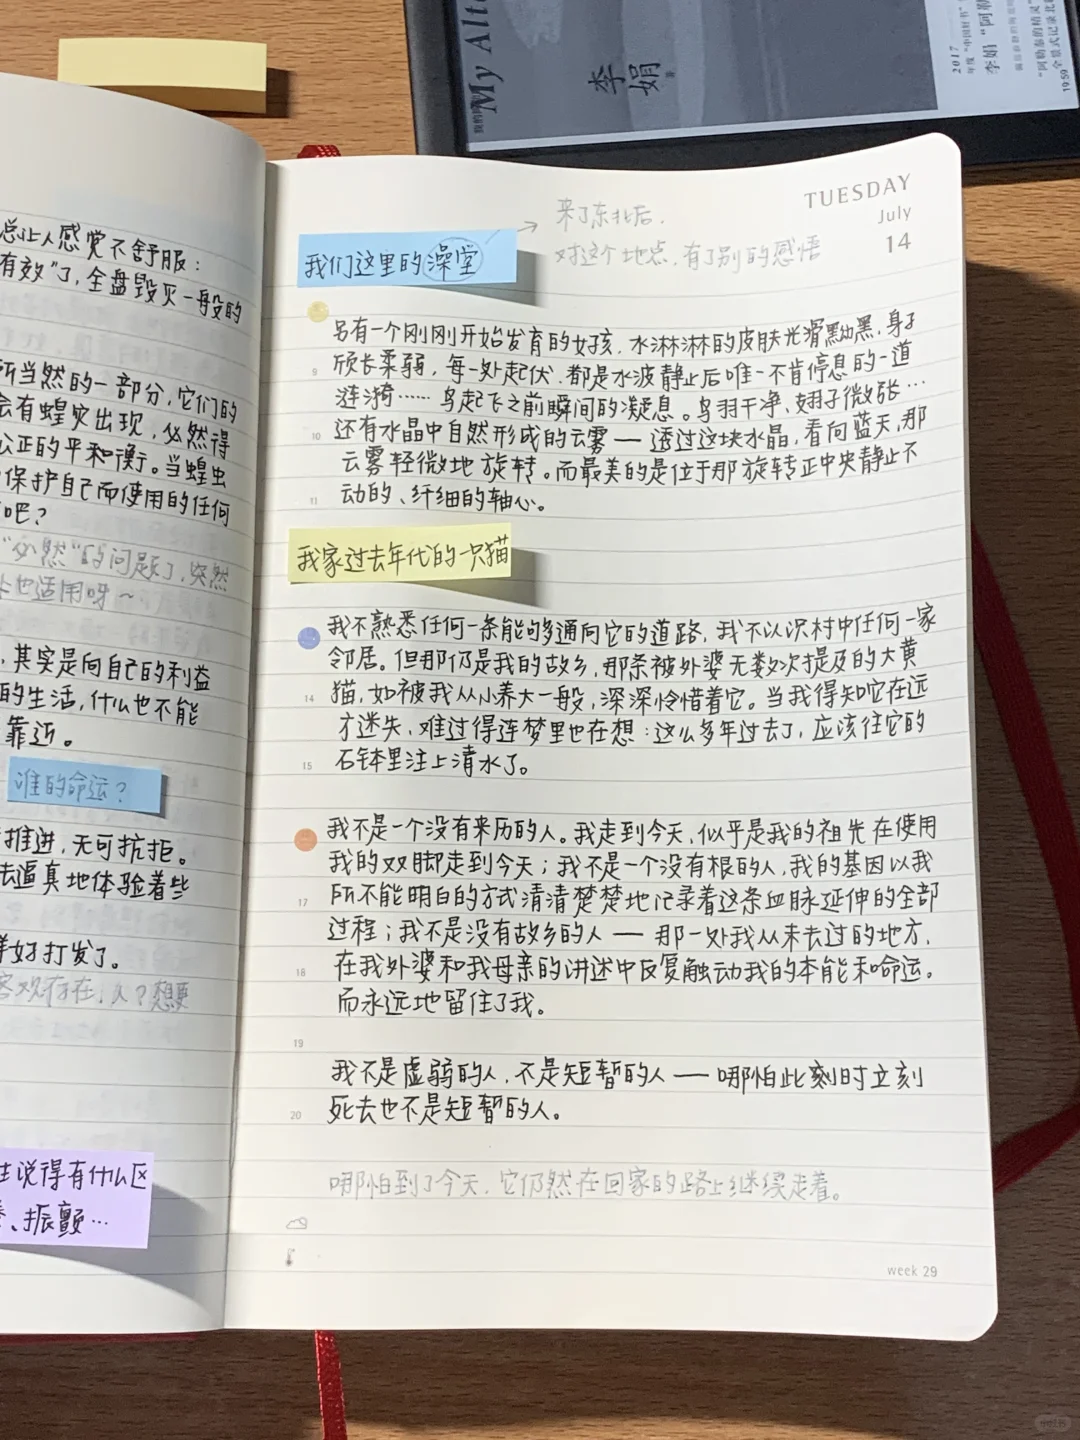 My Alt
李娟
著
2017
年度“中国好书”
李娟“阿勒
“阿勒泰的精灵”
全景式记录北疆
19:59
总让人感觉不舒服：
有效”了，全盘毁灭一般的
所当然的一部分，它们的
会有蝗灾出现，必然得
公正的平和衡。当蝗虫
保护自己而使用的任何
吧？
“必然”的问题了，突然
也适用呀～
，其实是向自己的利益
的生活，什么也不能
靠近。
谁的命运？
推进，无可抗拒。
去逼真地体验着些
样好打发了。
客观存在；人？想要
生说得有什么区
、振颤…
TUESDAY
July
14
来了东北后，
对这个地点，有了别的感悟
我们这里的澡堂
另有一个刚刚开始发育的女孩，水淋淋的皮肤光滑黝黑，身子
颀长柔弱，每一处起伏，都是水波静止后唯一不肯停息的一道
9
涟漪……鸟起飞之前瞬间的凝息。鸟羽干净、翅子微张…
还有水晶中自然形成的云雾——透过这块水晶，看向蓝天，那
10
云雾轻微地旋转。而最美的是位于那旋转正中央静止不
动的、纤细的轴心。
11
我家过去年代的一只猫
我不熟悉任何一条能够通向它的道路，我不认识村中任何一家
邻居。但那仍是我的故乡，那条被外婆无数次提及的大黄
猫，如被我从小养大一般，深深怜惜着它。当我得知它在远
14
方迷失，难过得连梦里也在想：这么多年过去了，应该往它的
石钵里注上清水了。
15
我不是一个没有来历的人。我走到今天，似乎是我的祖先在使用
我的双脚走到今天；我不是一个没有根的人，我的基因以我
所不能明白的方式清清楚楚地记录着这条血脉延伸的全部
17
过程；我不是没有故乡的人——那一处我从未去过的地方，
在我外婆和我母亲的讲述中反复触动我的本能和命运，
18
而永远地留住了我。
19
我不是虚弱的人，不是短暂的人——哪怕此刻时立刻
死去也不是短暂的人。
20
哪怕到了今天，它仍然在回家的路上继续走着。
week 29